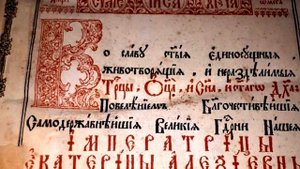 Во славу ст҃ыѧ єдиносущныѧ
животворѧщіѧ и нераздѣлимыѧ
Трⷪ҇цы, Оц҃а, и Сн҃а, и ст҃агѡ Дх҃а
Повелѣніемъ Благочестивѣйшіѧ
Самодержавнѣйшіѧ Великіѧ Гдⷭ҇рни Нашеѧ
ІМПЕРАТРІЦЫ
ЄКАТЕРІНЫ АЛЕѮІЕВНЫ